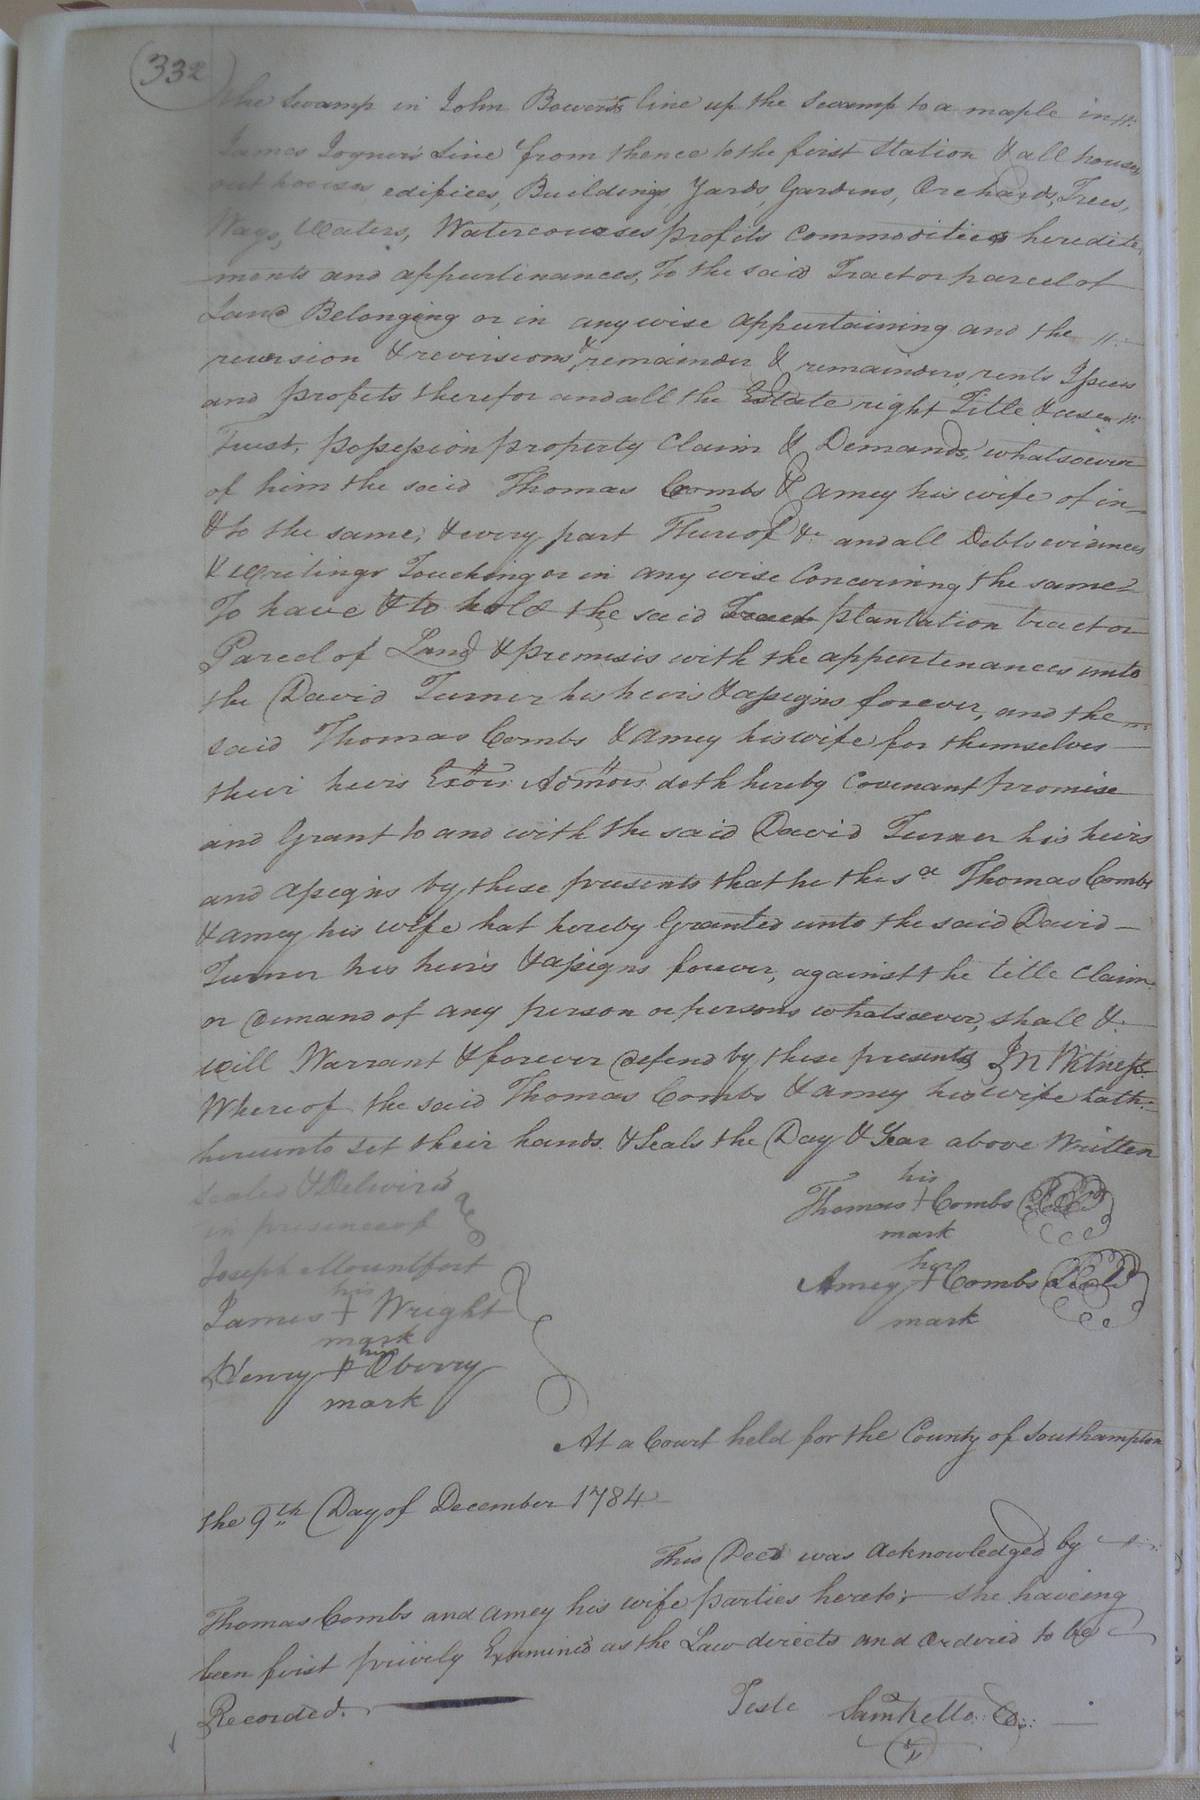 332
the Swamp in John Bowers line up the Swamp to a maple in
James Joyners Line from thence to the first Station & all houses
out houses edifices, Buildings, Yards, Gardens, Orchards, Trees,
Ways, Waters, Watercourses profits commodities heredite
ments and appurtinances, To the said Tract or parcel of
Land Belonging or in anywise appurtaining and the
reversion & revirsions, & remainder & remainders, rents Issues
and profits therefor and all the Estate right Title & use
Trust, possession property Claim & Demands, whatsoever
of him the said Thomas Combs & Amey his wife of in
& to the same, & every part Thereof &c and all Debts evidences
& Writings Touching or in any wise Concerning the same
To have & to hold the said Tract plantation tract or
Parcel of Land & premisis with the appurtenances unto
the David Turner his heirs & assigns forever, and the
said Thomas Combs & Amey his wife for themselves
their heirs Exors Admors doth hereby Covenant promise
and Grant to and with the said David Turner his heirs
and assigns by these presents that he the sd Thomas Combs
& Amey his wife hat hereby Granted unto the said David
Turner his heirs & assigns forever, against the title Claim
or demand of any person or persons whatsoever, shall &
will Warrant & forever defend by these presents In Witness
Whereof the said Thomas Combs & Amey his wife hath
hereunto set their hands & Seals the Day & Year above Written
Sealed & Deliverd
in presence of
his
Thomas + Combs Seal
mark
Joseph Mountfort
her
Amey + Combs Seal
mark
his
James + Wright
mark
his
Henry Oberry
mark
At a Court held for the County of Southampton
the 9th Day of December 1784
This Deed was Acknowledged by
Thomas Combs and Amey his wife parties hereto; she haveing
been first privily Examined as the Law directs and Ordered to be
Recorded.
Teste Saml Kello